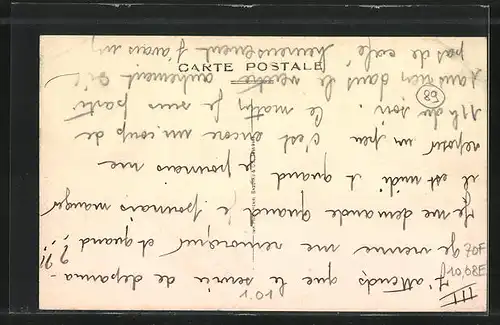 CARTE POSTALE
89
III
J'attends que le service de depanna-
ge vienne me remorquer et quand ? ?!
Je me demande quand je pourrais manger
il est midi et quand je pourrais me
reposer un peu c'est encore un coup de
11h du soir. Ce matin je suis parti
sans rien dans le ventre autrement dit
pas de café heureusement j'avais un
70F
10,68E